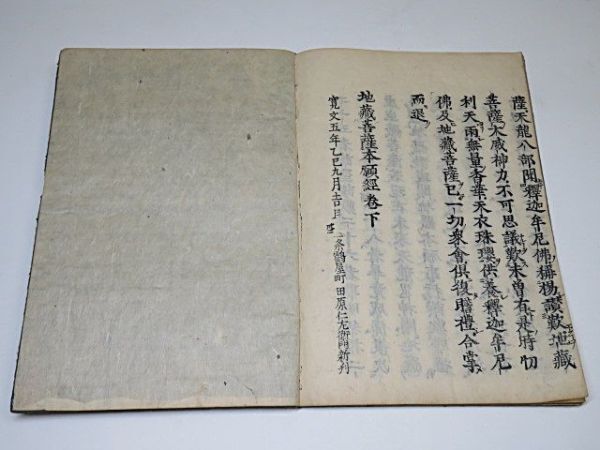 薩天龍八部聞釋迦牟尼佛稱揚讚歎地藏
菩薩大威神力不可思議歎未曾有是時忉
利天雨無量香華天衣珠瓔供養釋迦牟尼
佛及地藏菩薩已一切衆會俱復瞻禮合掌
而退
地藏菩薩本願經卷下
寛文五年乙巳九月吉日 二条鶴屋町 田原仁左衛門新刋